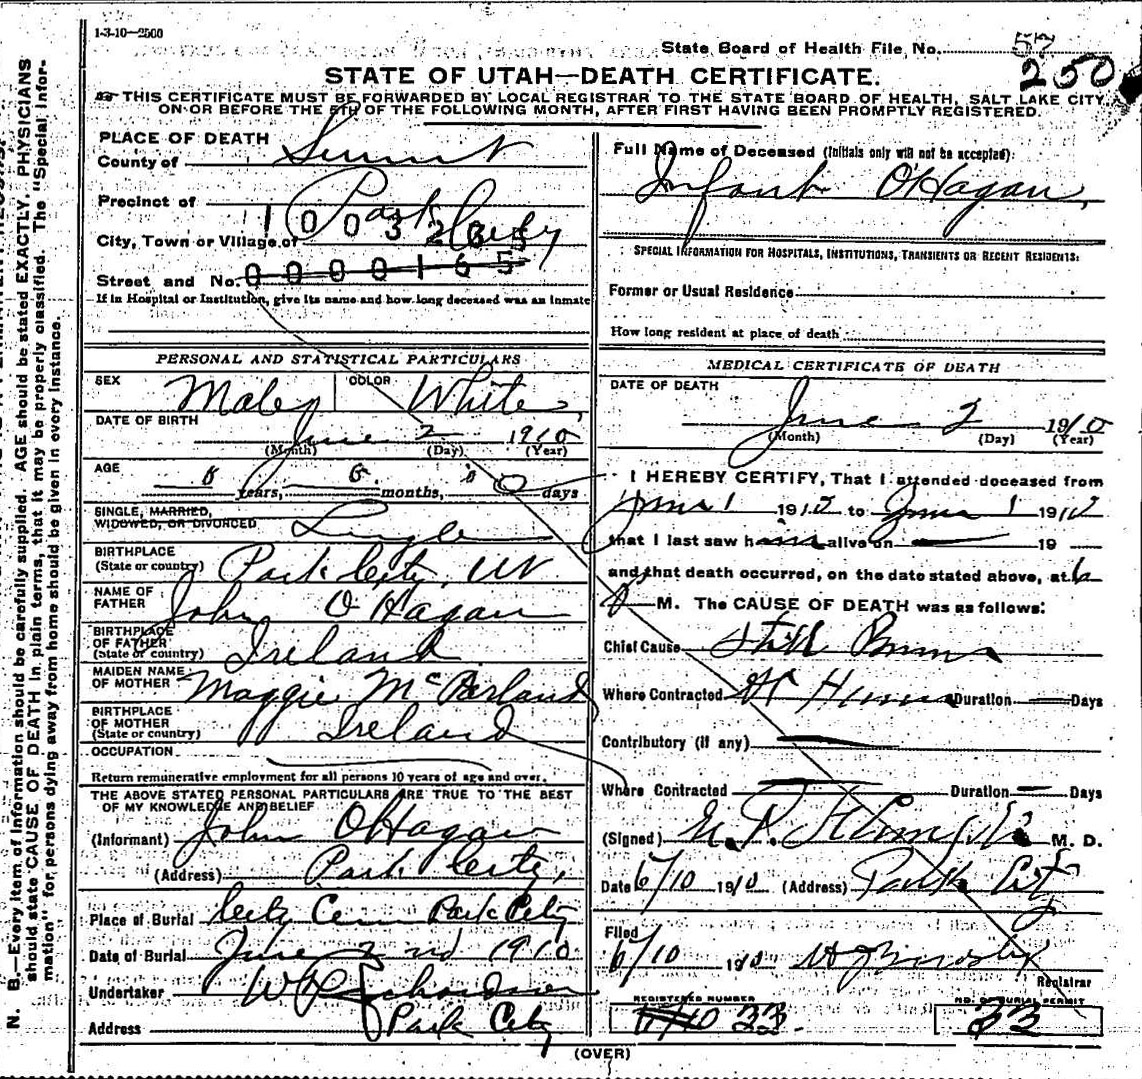 1-3-10—2500
State Board of Health File No. 57
250
STATE OF UTAH—DEATH CERTIFICATE.
THIS CERTIFICATE MUST BE FORWARDED BY LOCAL REGISTRAR TO THE STATE BOARD OF HEALTH, SALT LAKE CITY,
ON OR BEFORE THE 5TH OF THE FOLLOWING MONTH, AFTER FIRST HAVING BEEN PROMPTLY REGISTERED.
PLACE OF DEATH
County of Summit
Precinct of Park City
1003265
City, Town or Village of
Street and No. 0000165
If in Hospital or Institution, give its name and how long deceased was an inmate
PERSONAL AND STATISTICAL PARTICULARS
SEX Male COLOR White
DATE OF BIRTH
June 2 1910
(Month) (Day) (Year)
AGE
0 years, 0 months, 0 days
SINGLE, MARRIED,
WIDOWED, OR DIVORCED Single
BIRTHPLACE
(State or country) Park City, Ut
NAME OF
FATHER John O'Hagan
BIRTHPLACE
OF FATHER
(State or country) Ireland
MAIDEN NAME
OF MOTHER Maggie McParland
BIRTHPLACE
OF MOTHER
(State or country) Ireland
OCCUPATION
Return remunerative employment for all persons 10 years of age and over.
THE ABOVE STATED PERSONAL PARTICULARS ARE TRUE TO THE BEST
OF MY KNOWLEDGE AND BELIEF
(Informant) John O'Hagan
(Address) Park City,
Place of Burial City Cem Park City
Date of Burial June 2nd 1910
Undertaker W Richardson
Address Park City
Full Name of Deceased (Initials only will not be accepted):
Infant O'Hagan,
SPECIAL INFORMATION FOR HOSPITALS, INSTITUTIONS, TRANSIENTS OR RECENT RESIDENTS:
Former or Usual Residence
How long resident at place of death
MEDICAL CERTIFICATE OF DEATH
DATE OF DEATH
June 2 1910
(Month) (Day) (Year)
I HEREBY CERTIFY, That I attended deceased from
June 1 1910 to June 1 1910
that I last saw him alive on — 19 —
and that death occurred, on the date stated above, at 6
M. The CAUSE OF DEATH was as follows:
Chief Cause Still Born
Where Contracted At Home Duration — Days
Contributory (if any) —
Where Contracted — Duration — Days
(Signed) M. D.
Date 6/10 1910 (Address) Park City
Filed
6/10 1910
Registrar
REGISTERED NUMBER
33
NO. OF BURIAL PERMIT
33
(OVER)
N. B.—Every item of information should be carefully supplied. AGE should be stated EXACTLY. PHYSICIANS
should state CAUSE OF DEATH in plain terms, that it may be properly classified. The "Special Infor-
mation" for persons dying away from home should be given in every instance.